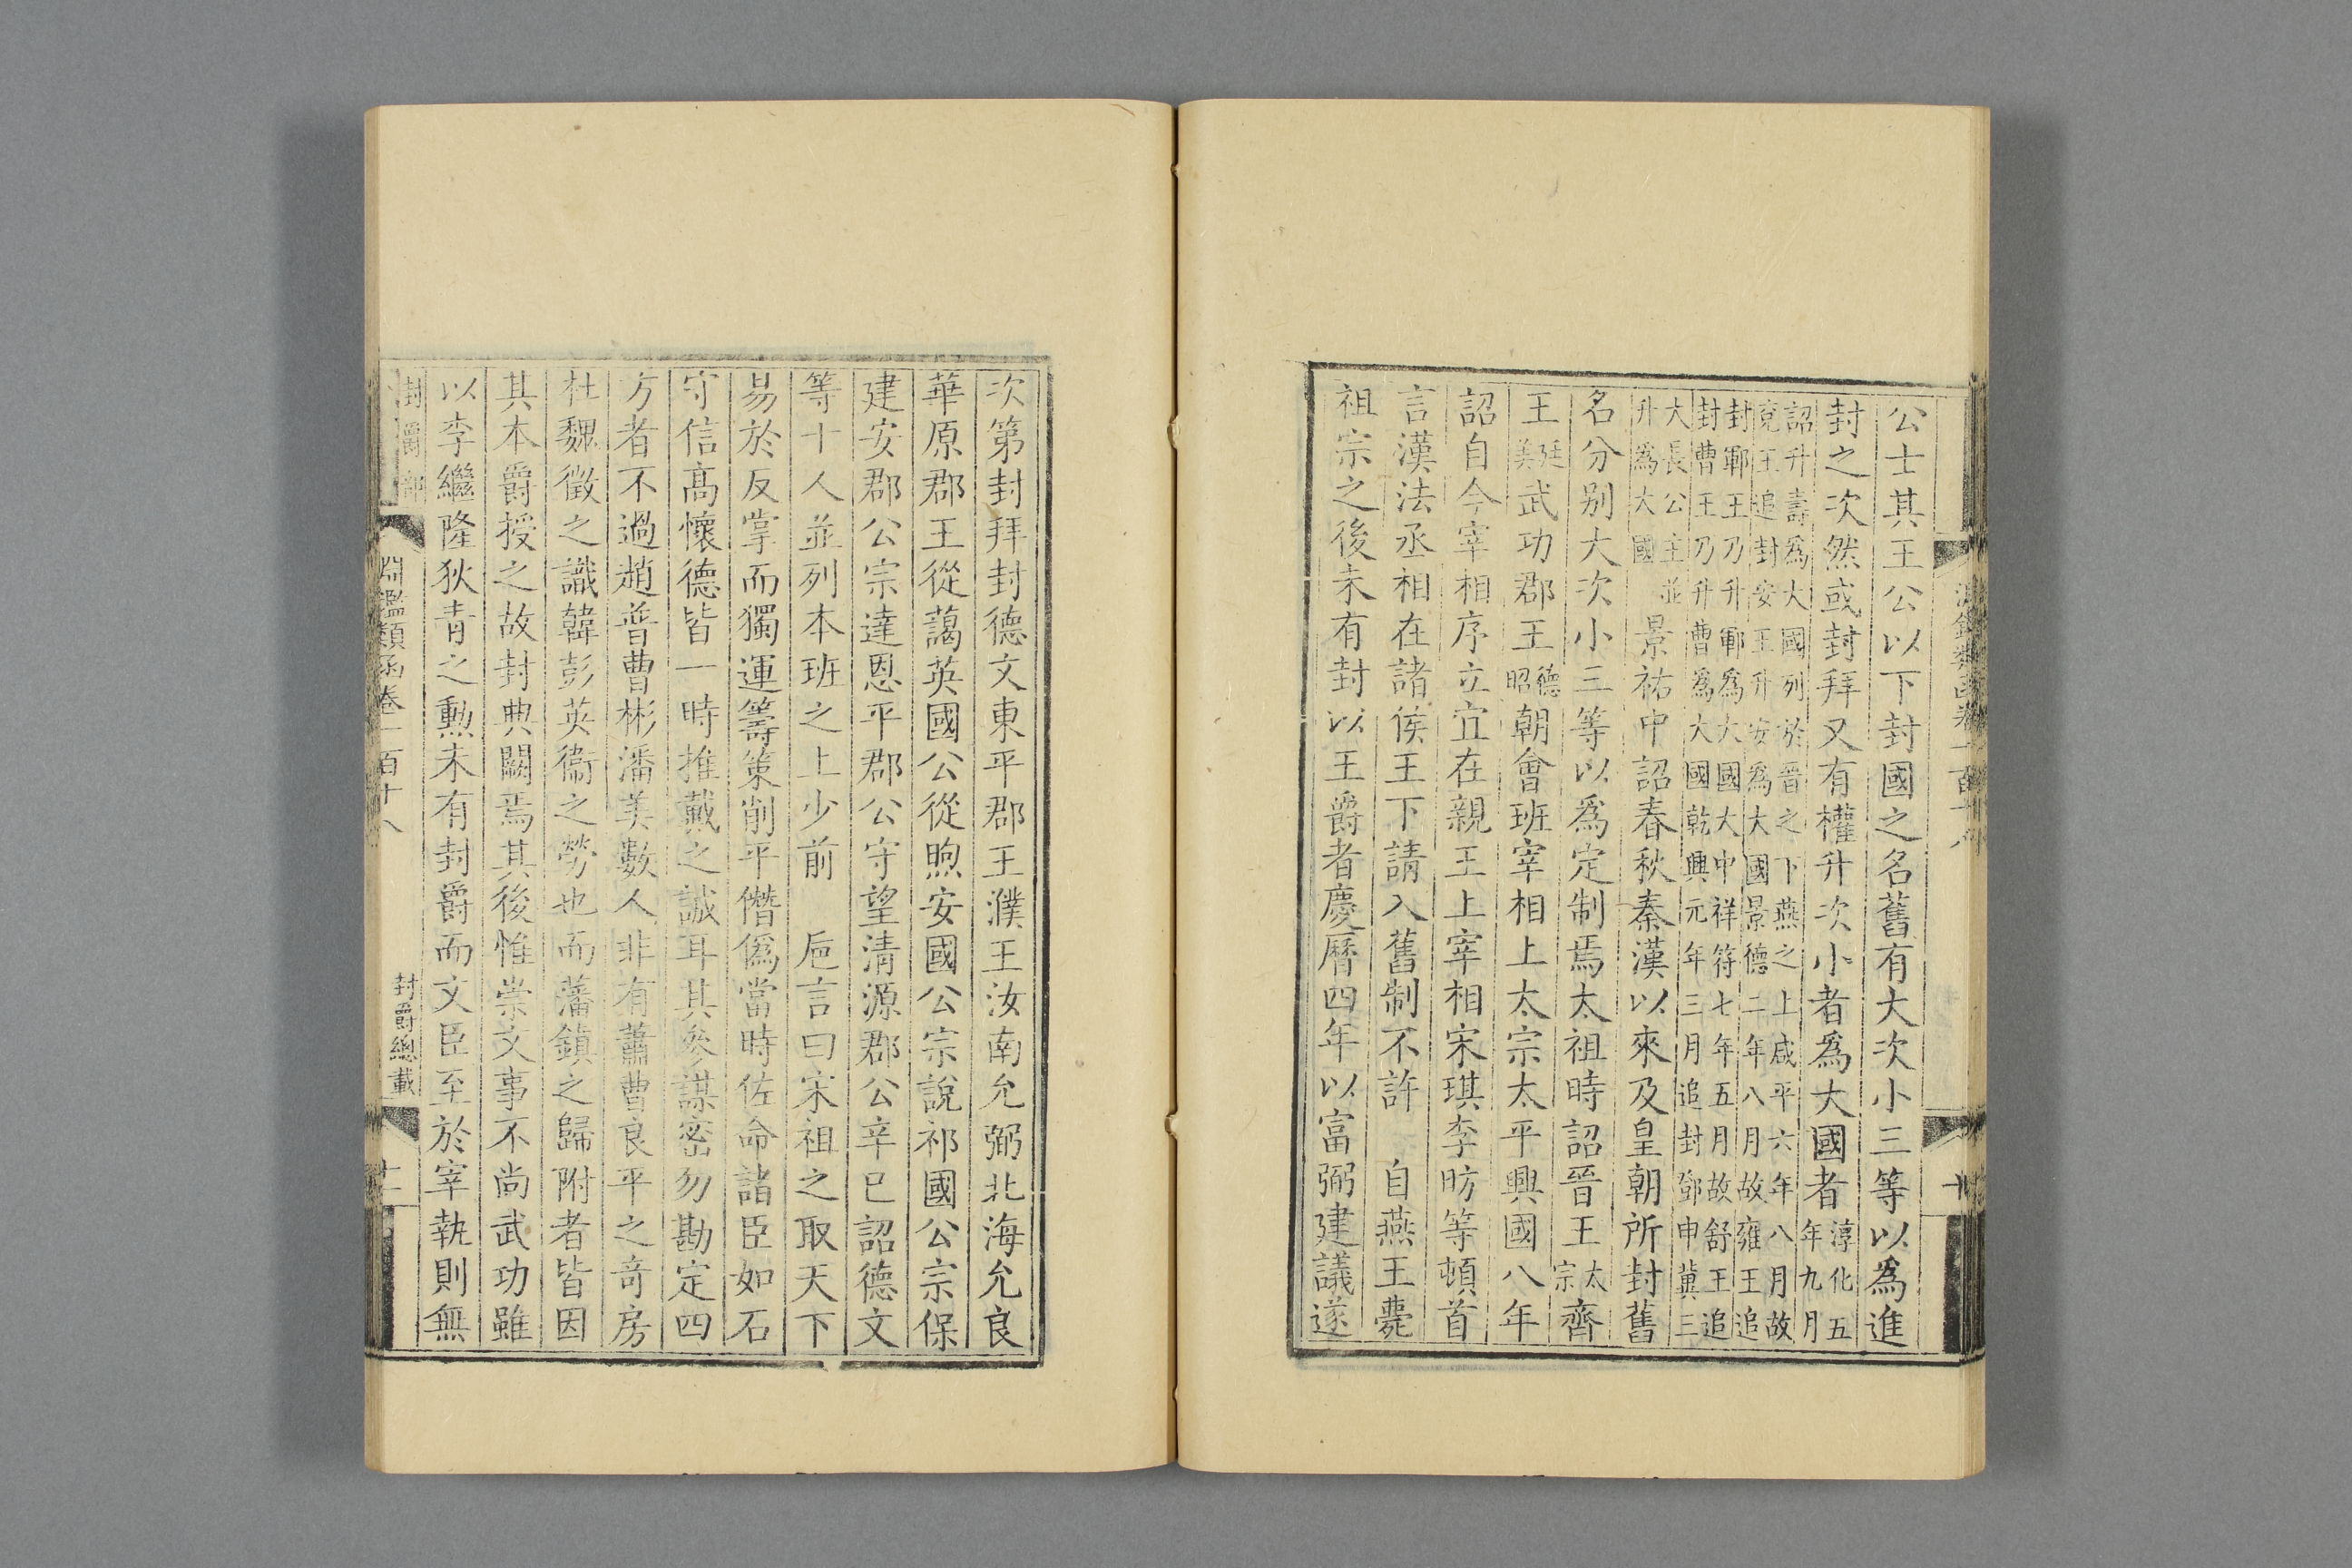 公士其王公以下封國之名舊有大次小三等以爲進
封之次然或封拜又有權升次小者爲大國者淳化五年九月
詔升壽爲大國列於晉之下燕之上咸平六年八月故
兗王追封安王升安爲大國景德二年八月故雍王追
封鄆王乃升鄆爲大國大中祥符七年五月故舒王追
封曹王乃升曹爲大國乾興元年三月追封鄧申冀三
大長公主並升爲大國 景祐中詔春秋秦漢以來及皇朝所封舊
名分别大次小三等以爲定制焉太祖時詔晉王太宗齊
王廷美武功郡王德昭朝會班宰相上太宗太平興國八年
詔自今宰相序立宜在親王上宰相宋琪李昉等頓首
言漢法丞相在諸侯王下請入舊制不許 自燕王薨
祖宗之後未有封以王爵者慶曆四年以富弼建議遂
次第封拜封德文東平郡王濮王汝南允弼北海允良
華原郡王從藹英國公從煦安國公宗說祁國公宗保
建安郡公宗達恩平郡公守望清源郡公辛巳詔德文
等十人並列本班之上少前 巵言曰宋祖之取天下
易於反掌而獨運籌策削平僭僞當時佐命諸臣如石
守信高懷德皆一時推戴之誠耳其參謀密勿勘定四
方者不過趙普曹彬潘美數人非有蕭曹良平之奇房
杜魏徵之識韓彭英衞之勞也而藩鎮之歸附者皆因
其本爵授之故封典闕焉其後惟崇文事不尚武功雖
以李繼隆狄青之勲未有封爵而文臣至於宰執則無
封爵部
淵鑑類函卷一百十八
封爵總載
十一